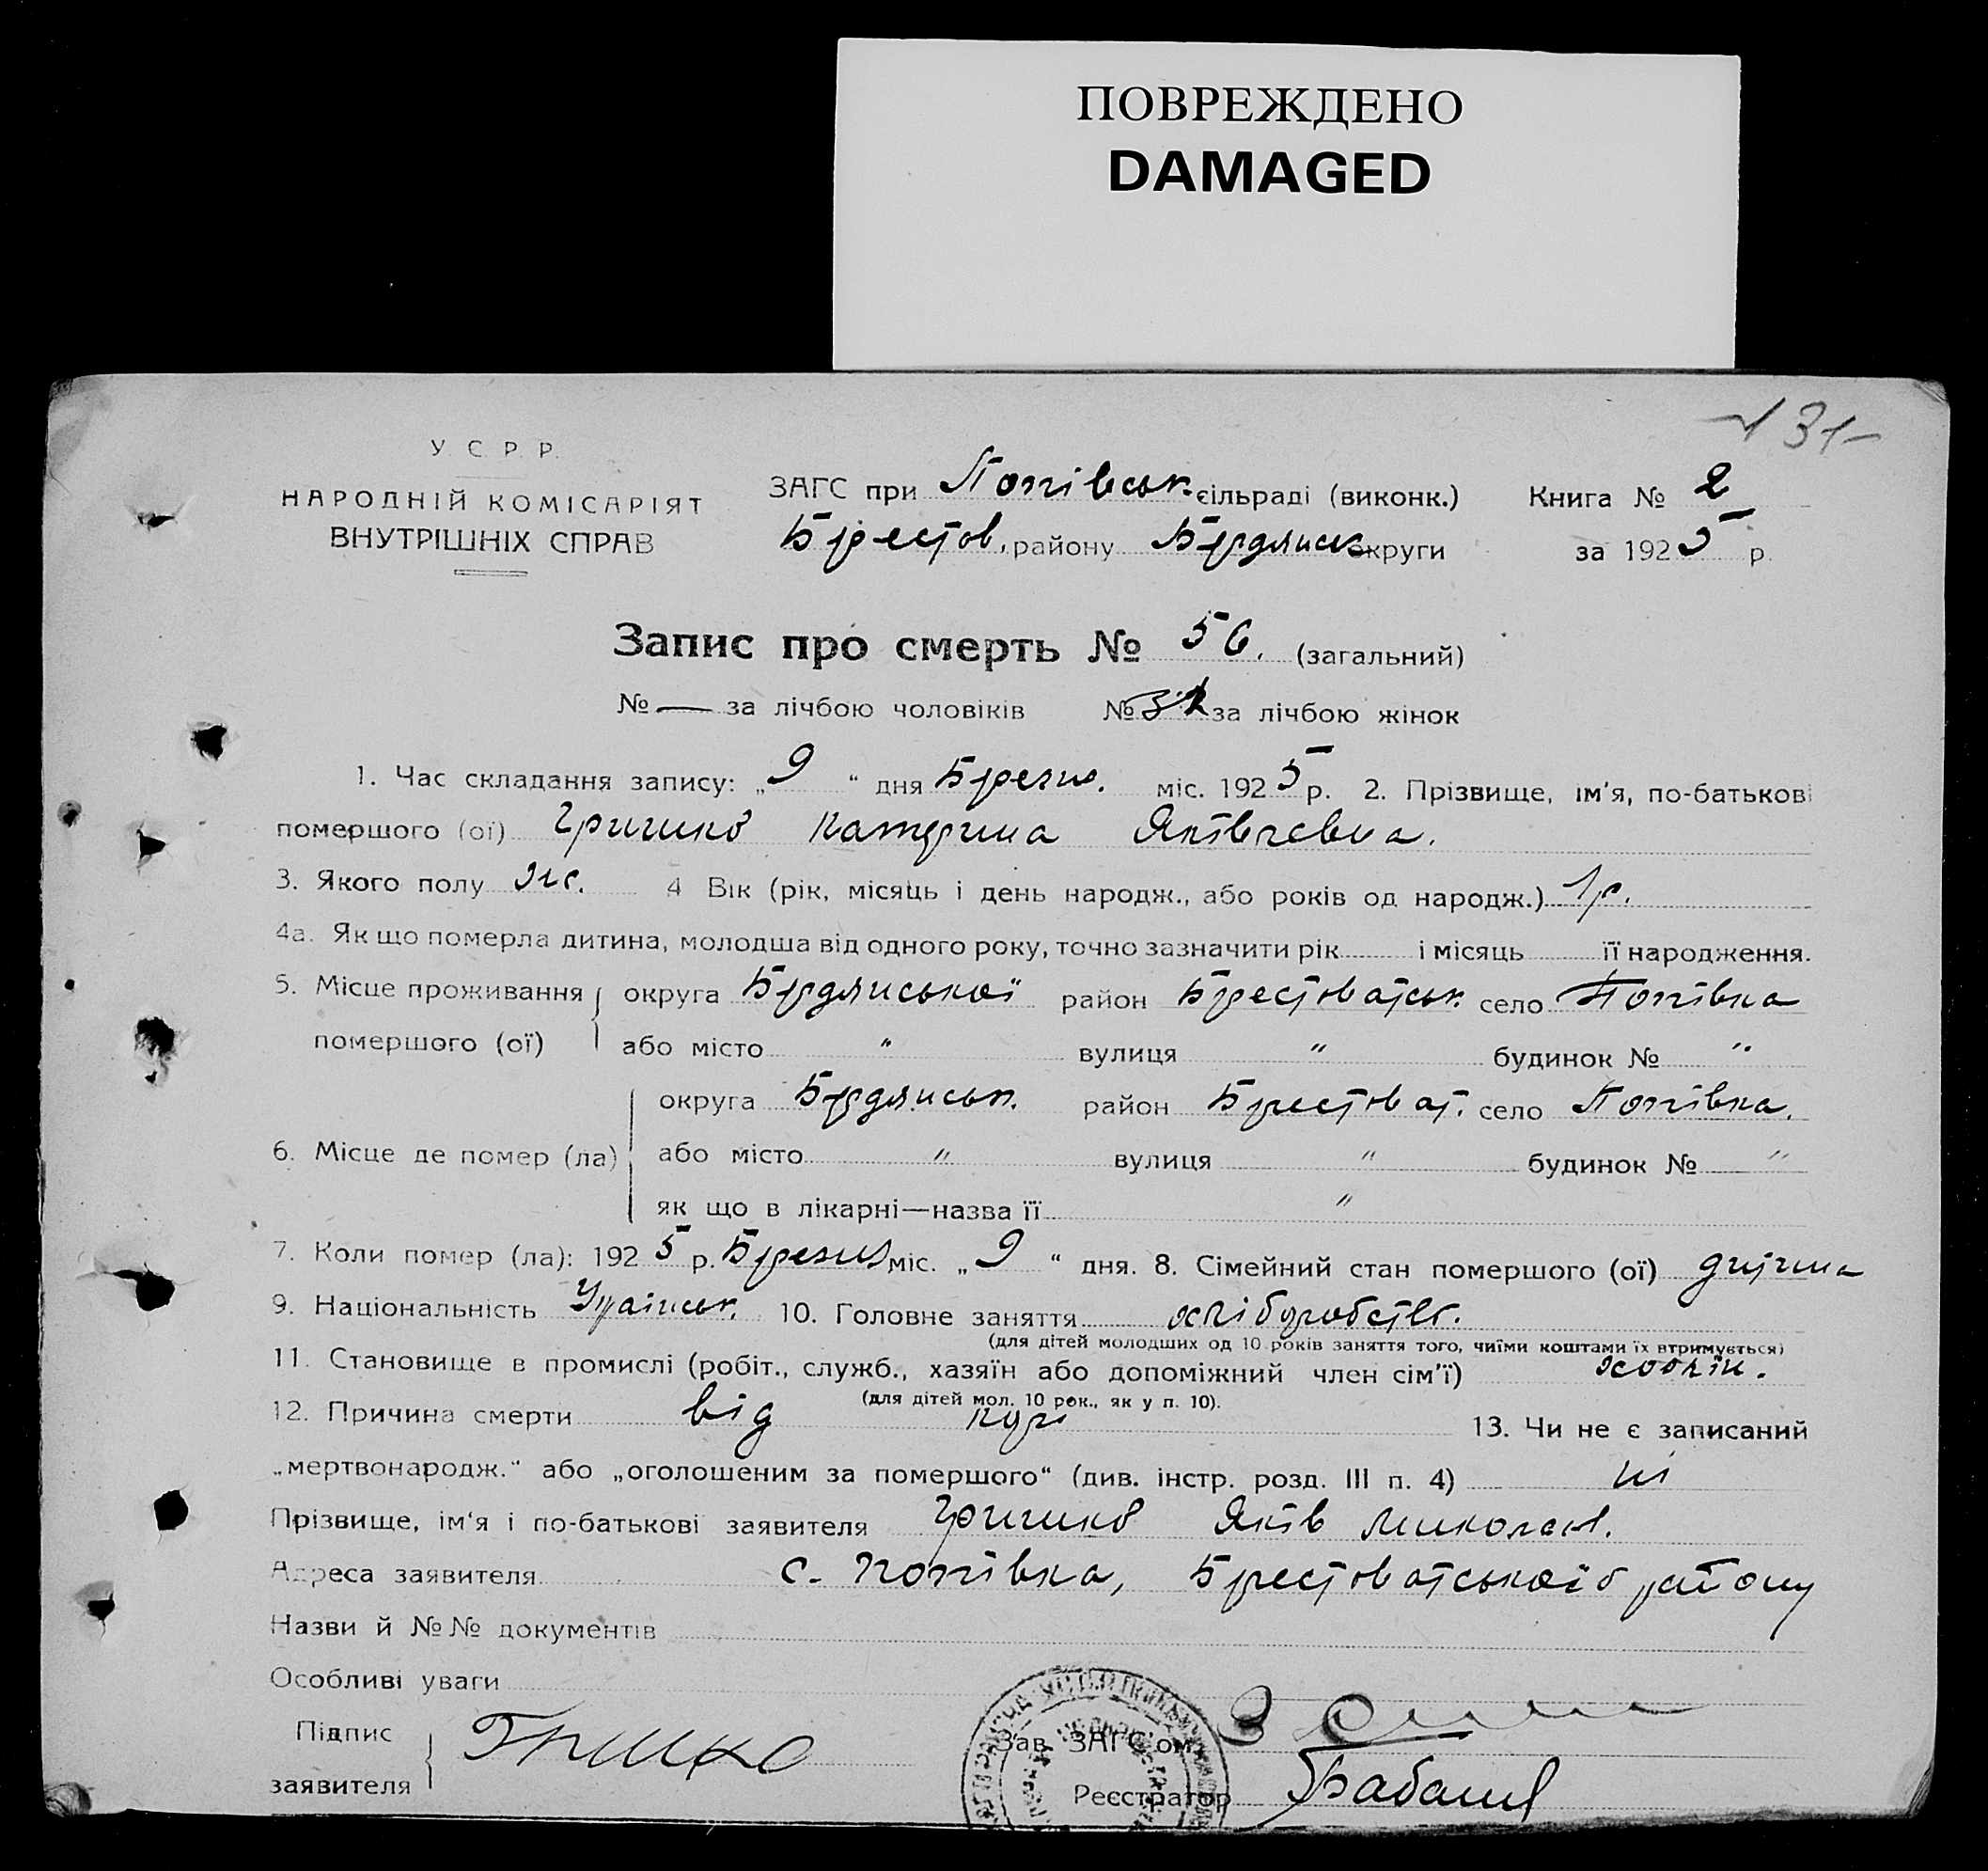 ПОВРЕЖДЕНО
DAMAGED
131
У. С. Р. Р.
НАРОДНІЙ КОМІСАРІЯТ
ВНУТРІШНІХ СПРАВ
ЗАГС при Попівськ. сільраді (виконк.) Книга № 2
Брестов. району Бердянськ округи за 1925 р.
Запис про смерть № 56. (загальний)
№ — за лічбою чоловіків № за лічбою жінок
1. Час складання запису: „9“ дня Березня. міс. 1925 р. 2. Прізвище, ім'я, по-батькові
помершого (ої) Гришко Катерина Яківлевна.
3. Якого полу жс. 4 Вік (рік, місяць і день народж., або років од народж.) 1 р.
4а. Як що померла дитина, молодша від одного року, точно зазначити рік і місяць її народження.
5. Місце проживання округа Бердянської район Брестоватськ. село Попівка
помершого (ої) або місто " вулиця " будинок № "
округа Бердянськ. район Брестоват. село Попівка.
6. Місце де помер (ла) або місто " вулиця " будинок № "
як що в лікарні—назва її "
7. Коли помер (ла): 1925 р. Березня міс. „9“ дня. 8. Сімейний стан помершого (ої) дитина
9. Національність 10. Головне заняття хліборобств.
(для дітей молодших од 10 років заняття того, чиїми коштами їх втримується)
11. Становище в промислі (робіт., служб., хазяїн або допоміжний член сім'ї)
(для дітей мол. 10 рок., як у п. 10).
12. Причина смерти від кору 13. Чи не є записаний
„мертвонародж.“ або „оголошеним за помершого“ (див. інстр. розд. III п. 4) ні
Прізвище, ім'я і по-батькові заявителя Гришко Яків Миколаєв.
Адреса заявителя с. Попівка, Брестоватського району
Назви й №№ документів
Особливі уваги
Підпис
заявителя Гришко
Зав. ЗАГС'ом
Реєстратор